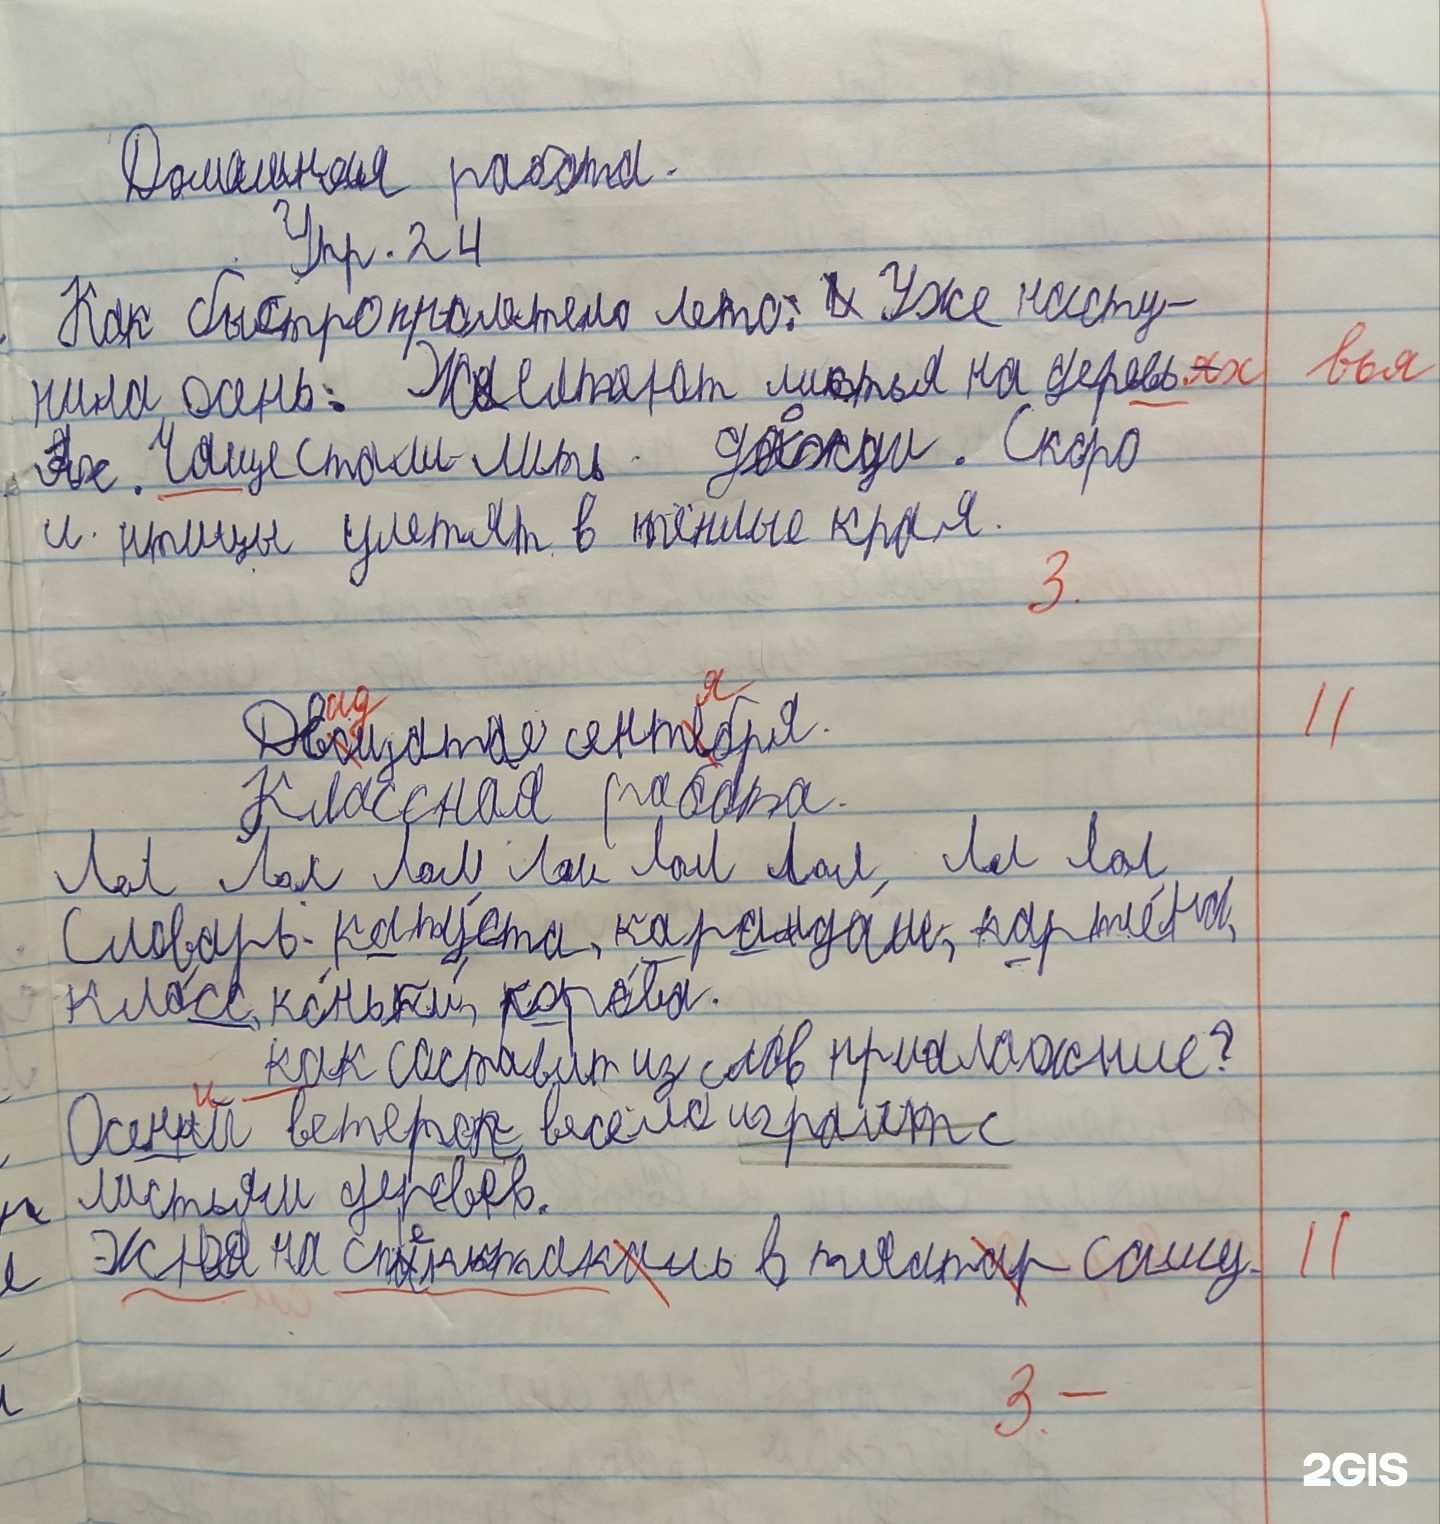 Домашная работа.
Упр. 24
Как быстро пролетело лето. Уже насту-
пила осень. Желтеют листья на деревь ях вья
ях. Чаще стали лить дожди. Скоро
и птицы улетят в тёплые края.
3.
ад я
Двацатое сентебря. ||
Классная работа.
Лал Лал Лал Лал Лал Лал, Лал Лал
Словарь. капуста, карандаш, картина,
класс, коньки, корова.
как составит из слов придложение?
и
Осений ветерок весело играит с
листьями деревев.
на в театар сашу. ||
3. –
2GIS